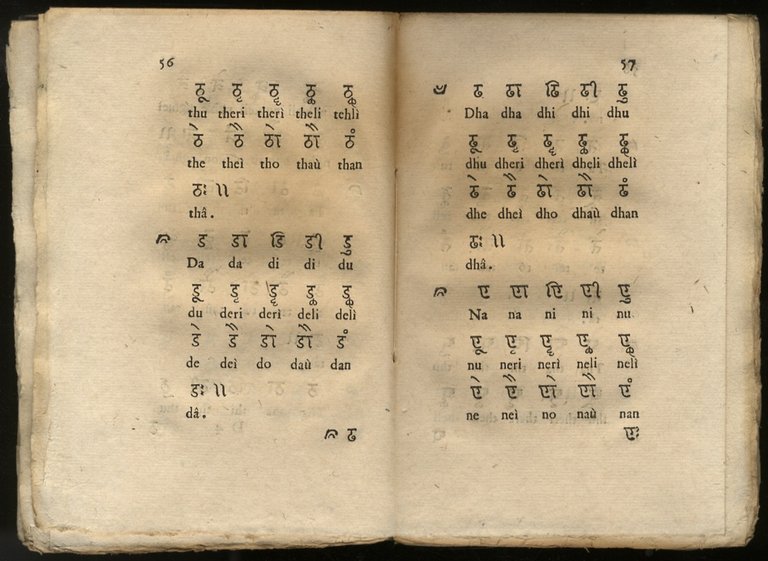 56
ठू ठृ ठॄ ठॢ ठॣ
thu theri therì theli tehlì
ठे ठै ठो ठौ ठं
the theì tho thaù than
ठः ॥
thâ.
ड डा डि डी डु
Da da di di du
डू डृ डॄ डॢ डॣ
du deri derì deli delì
डे डै डो डौ डं
de deì do daù dan
डः ॥
dâ.
ढ
57
ढ ढा ढि ढी ढु
Dha dha dhi dhi dhu
ढू ढृ ढॄ ढॢ ढॣ
dhu dheri dherì dheli dhelì
ढे ढै ढो ढौ ढं
dhe dheì dho dhaù dhan
ढः ॥
dhâ.
Na na ni ni nu
nu neri nerì neli nelì
ne neì no naù nan